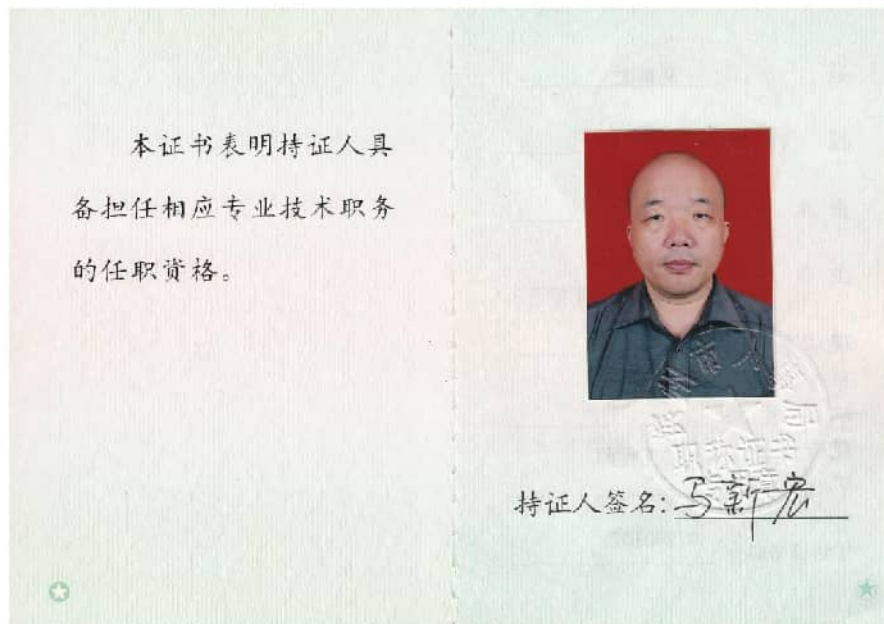 本证书表明持证人具
备担任相应专业技术职务
的任职资格。
职称证书
持证人签名：马新宏